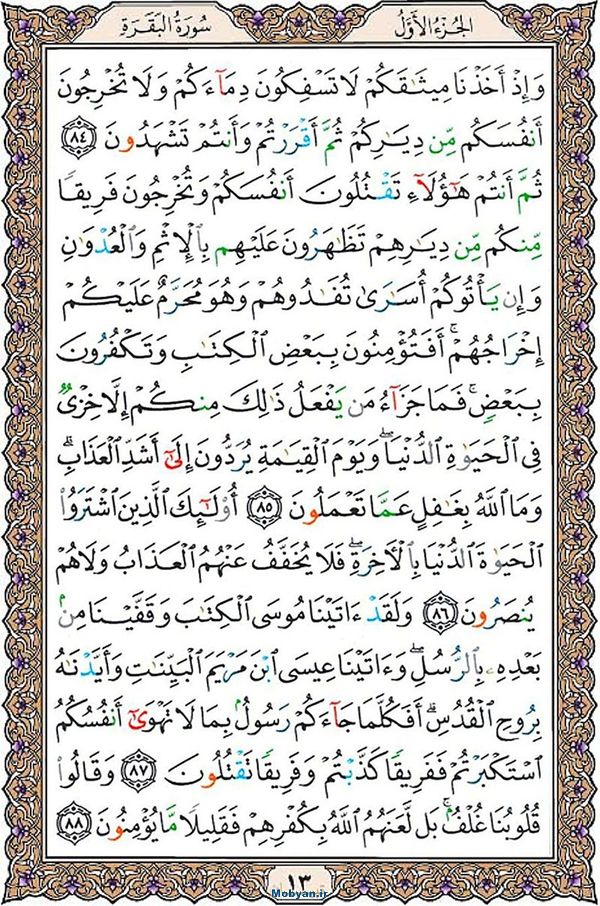 الجزء الأول
سورة البقرة
وَإِذْ أَخَذْنَا مِيثَـٰقَكُمْ لَا تَسْفِكُونَ دِمَآءَكُمْ وَلَا تُخْرِجُونَ
أَنفُسَكُم مِّن دِيَـٰرِكُمْ ثُمَّ أَقْرَرْتُمْ وَأَنتُمْ تَشْهَدُونَ ٨٤
ثُمَّ أَنتُمْ هَـٰٓؤُلَآءِ تَقْتُلُونَ أَنفُسَكُمْ وَتُخْرِجُونَ فَرِيقًا
مِّنكُم مِّن دِيَـٰرِهِمْ تَظَـٰهَرُونَ عَلَيْهِم بِٱلْإِثْمِ وَٱلْعُدْوَٰنِ
وَإِن يَأْتُوكُمْ أُسَـٰرَىٰ تُفَـٰدُوهُمْ وَهُوَ مُحَرَّمٌ عَلَيْكُمْ
إِخْرَاجُهُمْ ۚ أَفَتُؤْمِنُونَ بِبَعْضِ ٱلْكِتَـٰبِ وَتَكْفُرُونَ
بِبَعْضٍ ۚ فَمَا جَزَآءُ مَن يَفْعَلُ ذَٰلِكَ مِنكُمْ إِلَّا خِزْىٌ
فِى ٱلْحَيَوٰةِ ٱلدُّنْيَا ۖ وَيَوْمَ ٱلْقِيَـٰمَةِ يُرَدُّونَ إِلَىٰٓ أَشَدِّ ٱلْعَذَابِ ۗ
وَمَا ٱللَّهُ بِغَـٰفِلٍ عَمَّا تَعْمَلُونَ ٨٥ أُو۟لَـٰٓئِكَ ٱلَّذِينَ ٱشْتَرَوُا۟
ٱلْحَيَوٰةَ ٱلدُّنْيَا بِٱلْـَٔاخِرَةِ ۖ فَلَا يُخَفَّفُ عَنْهُمُ ٱلْعَذَابُ وَلَا هُمْ
يُنصَرُونَ ٨٦ وَلَقَدْ ءَاتَيْنَا مُوسَى ٱلْكِتَـٰبَ وَقَفَّيْنَا مِنۢ
بَعْدِهِۦ بِٱلرُّسُلِ ۖ وَءَاتَيْنَا عِيسَى ٱبْنَ مَرْيَمَ ٱلْبَيِّنَـٰتِ وَأَيَّدْنَـٰهُ
بِرُوحِ ٱلْقُدُسِ ۗ أَفَكُلَّمَا جَآءَكُمْ رَسُولٌۢ بِمَا لَا تَهْوَىٰٓ أَنفُسُكُمُ
ٱسْتَكْبَرْتُمْ فَفَرِيقًا كَذَّبْتُمْ وَفَرِيقًا تَقْتُلُونَ ٨٧ وَقَالُوا۟
قُلُوبُنَا غُلْفٌۢ ۚ بَل لَّعَنَهُمُ ٱللَّهُ بِكُفْرِهِمْ فَقَلِيلًا مَّا يُؤْمِنُونَ ٨٨
١٣
Mobyan.ir